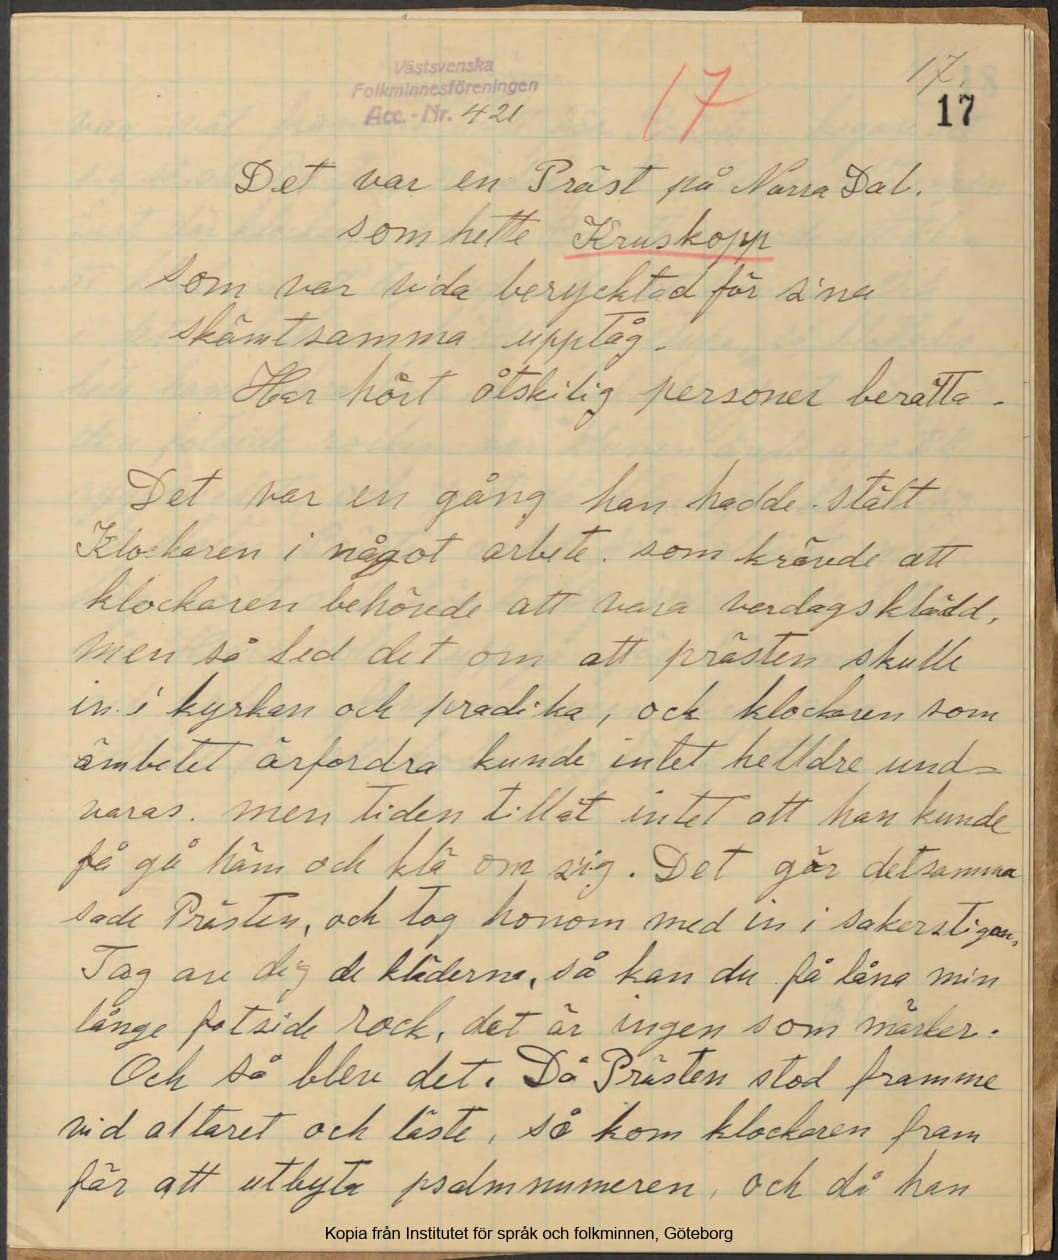 17.
17
Västsvenska
Folkminnesföreningen
Acc.-Nr. 421
17
Det var en Präst på Norra Dal.
som hette Kruskopp
som var vida berycktad för sina
skämtsamma upptåg.
Har hört åtskilig personer berätta.
Det var en gång han hadde stält
Klockaren i något arbete. som krävde att
klockaren behövde att vara vardagsklädd,
men så led det om att prästen skulle
in i kyrkan och pradika, och klockaren som
ämbetet ärfordra kunde intet helldre und=
varas. men tiden tillät intet att han kunde
få gå häm och klä om sig. Det gör detsamma
sade Prästen, och tog honom med in i sakerstigan,
Tag av dig de kläderna, så kan du få låna min
långe fotside rock, det är ingen som märker.
Och så blev det. Då Prästen stod framme
vid altaret och läste, så kom klockaren fram
för att utbyta psalmnumeren, och då han
Kopia från Institutet för språk och folkminnen, Göteborg